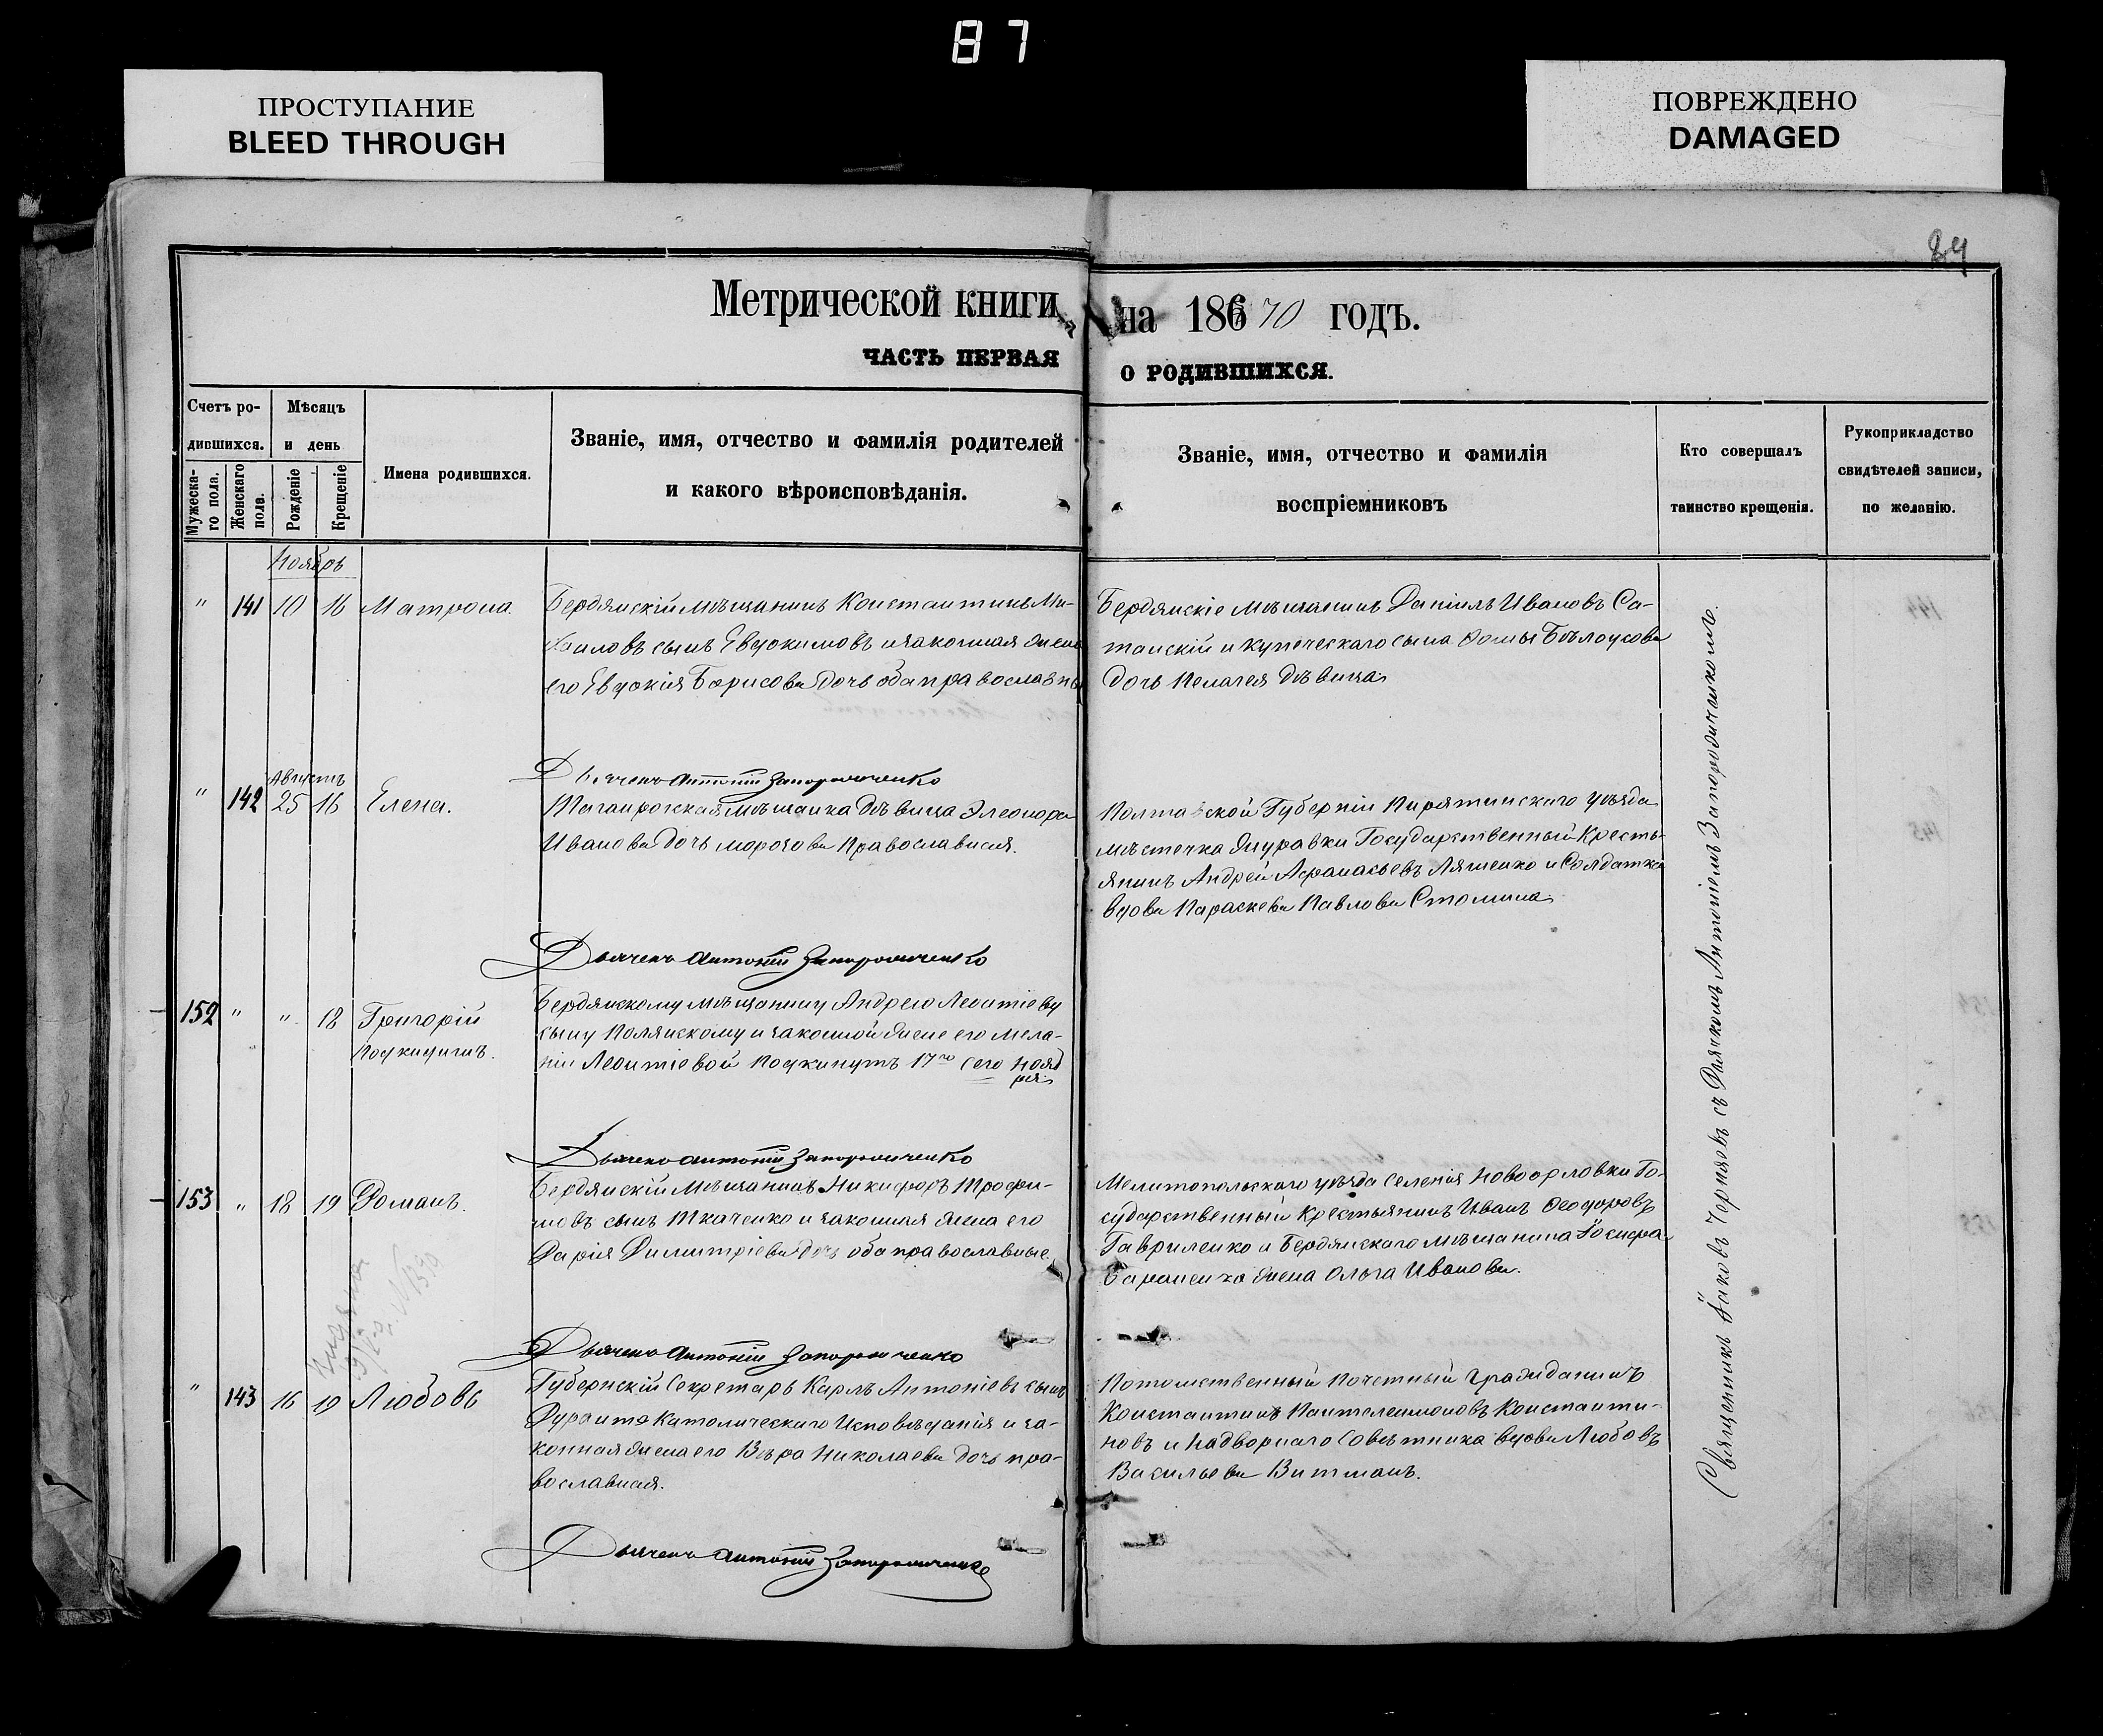 87
ПРОСТУПАНИЕ
BLEED THROUGH
ПОВРЕЖДЕНО
DAMAGED
84
Метрической книги на 186 70 годъ.
ЧАСТЬ ПЕРВАЯ О РОДИВШИХСЯ.
Счетъ ро-
дившихся.
Мужеска-
го пола.
Женскаго
пола.
Мѣсяцъ
и день
Рождение
Крещеніе
Имена родившихся.
Званіе, имя, отчество и фамилія родителей
и какого вѣроисповѣданія.
Званіе, имя, отчество и фамилія
воспріемниковъ
Кто совершалъ
таинство крещенія.
Рукоприкладство
свидѣтелей записи,
по желанію.
Ноябрь
" 141 10 16 Матрона
Бердянскій Мѣщанинъ Константинъ Ми-
хаиловъ сынъ Евдокимовъ и законная жена
его Евдокія Борисова дочь оба православны
Бердянскіе Мѣщанинъ Даніилъ Ивановъ Са-
танскій и купеческаго сына Фомы Бѣлоусова
дочь Пелагея дѣвица
Дьяченъ Антоній Запорожченко
Августъ
" 142 25 16 Елена.
Таганрогская мѣщанка дѣвица Элеонора
Иванова дочь Морозова Православная.
Полтавской Губерніи Пирятинскаго уѣзда
мѣстечка Журавки Государственный Кресть-
янинъ Андрей Афанасьевъ Ляшенко и Солдатка
вдова Параскева Павлова Стомина
Дьяченъ Антоній Запорожченко
152 " " 18 Григорій
подкидишъ.
Бердянскому мѣщанину Андрею Леонтіеву
сыну Полянскому и законной жене его Мела-
ніи Леонтіевой подкинутъ 17го сего Нояб
ря
Дьяченъ Антоній Запорожченко
153 " 18 19 Романъ.
Бердянскій Мѣщанинъ Никифоръ Трофи-
мовъ сынъ Ткаченко и законная жена его
Дарія Димитріева дочь оба православные.
Мелитопольскаго уѣзда селенія Новоорловки Го-
сударственный Крестьянинъ Иванъ Феодоровъ
Гавриленко и Бердянскаго мѣщанина Іосифа
Бараненка жена Ольга Иванова.
Дьяченъ Антоній Запорожченко
" 143 16 19 Любовь
Губернскій Секретарь Карлъ Антоніевъ сынъ
Дуранте Католическаго Исповѣданія и за-
конная жена его Вѣра Николаева дочь пра-
вославная.
Потомственный Почетный Гражданинъ
Константинъ Пантелеимоновъ Константи-
новъ и Надворнаго Совѣтника вдова Любовь
Васильева Витманъ.
Дьяченъ Антоній Запорожченко
Священникъ Іаковъ Чернявъ съ Дьячкомъ Антоніемъ Запорожченкомъ.